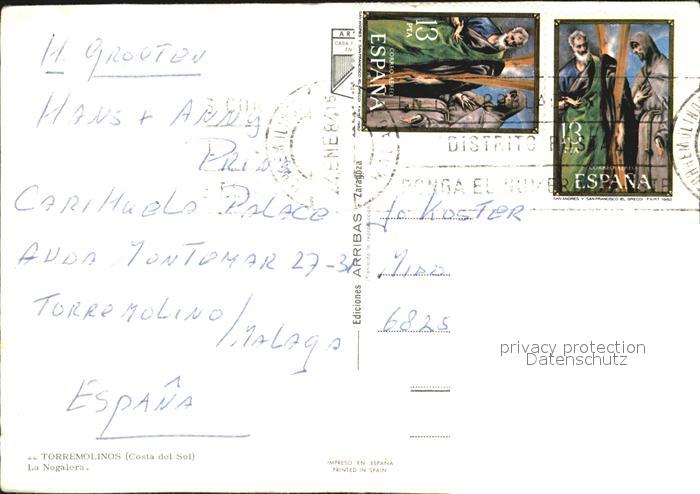 H. GROETEN
HANS + ANNY
PRINS
CARIHUELA PALACE
ANDA MONTEMAR 27-31
TORREMOLINO/
MALAGA
ESPAÑA
TORREMOLINOS (Costa del Sol)
La Nogalera.
IMPRESO EN ESPAÑA
PRINTED IN SPAIN
Ediciones ARRIBAS - Zaragoza
13
PTA
CORREO AEREO
ESPAÑA
13
PTA
CORREO AEREO
ESPAÑA
SAN ANDRES Y SAN FRANCISCO (EL GRECO) F.N.M.T. 1982
ENE 84
DISTRITO POSTAL
PONGA EL NUMERO
KOSTER
6825
privacy protection
Datenschutz